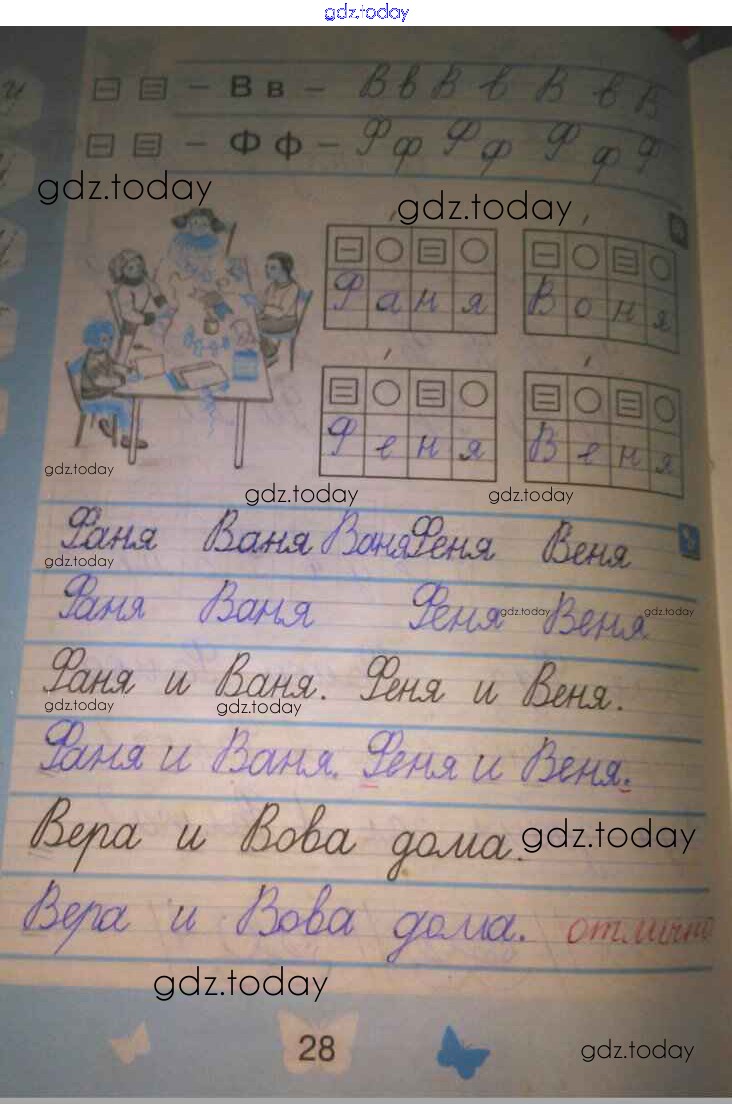 gdz.today
– В в – В в В в В в В
– Ф ф – Ф ф Ф ф Ф ф Ф
gdz.today gdz.today
Ф а н я В о н я
Ф е н я В е н я
gdz.today
gdz.today gdz.today
Фаня Ваня Ваня Феня Веня
gdz.today
Фаня Ваня Феня Веня
gdz.today gdz.today
Фаня и Ваня. Феня и Веня.
gdz.today gdz.today
Фаня и Ваня. Феня и Веня.
Вера и Вова дома.
gdz.today
Вера и Вова дома. отлично
gdz.today
28
gdz.today